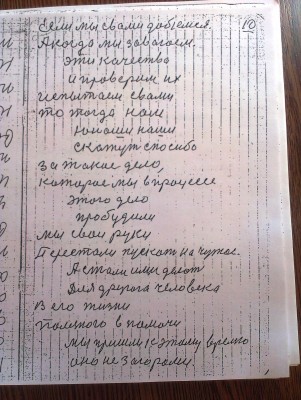 10
Если мы с вами добьемся.
А когда мы завоюем.
эти качества
и проверим их
испытаем с вами
то тогда нам
юноши наши
скажут спосибо
за такое дело,
которое мы в процессе
этого дело
пробудили
мы свои руки
Перестали пускать на чужое.
А стали ими
для друга человека
в его жизни
в помочи
мы пришли к этому время
оно не за горами.